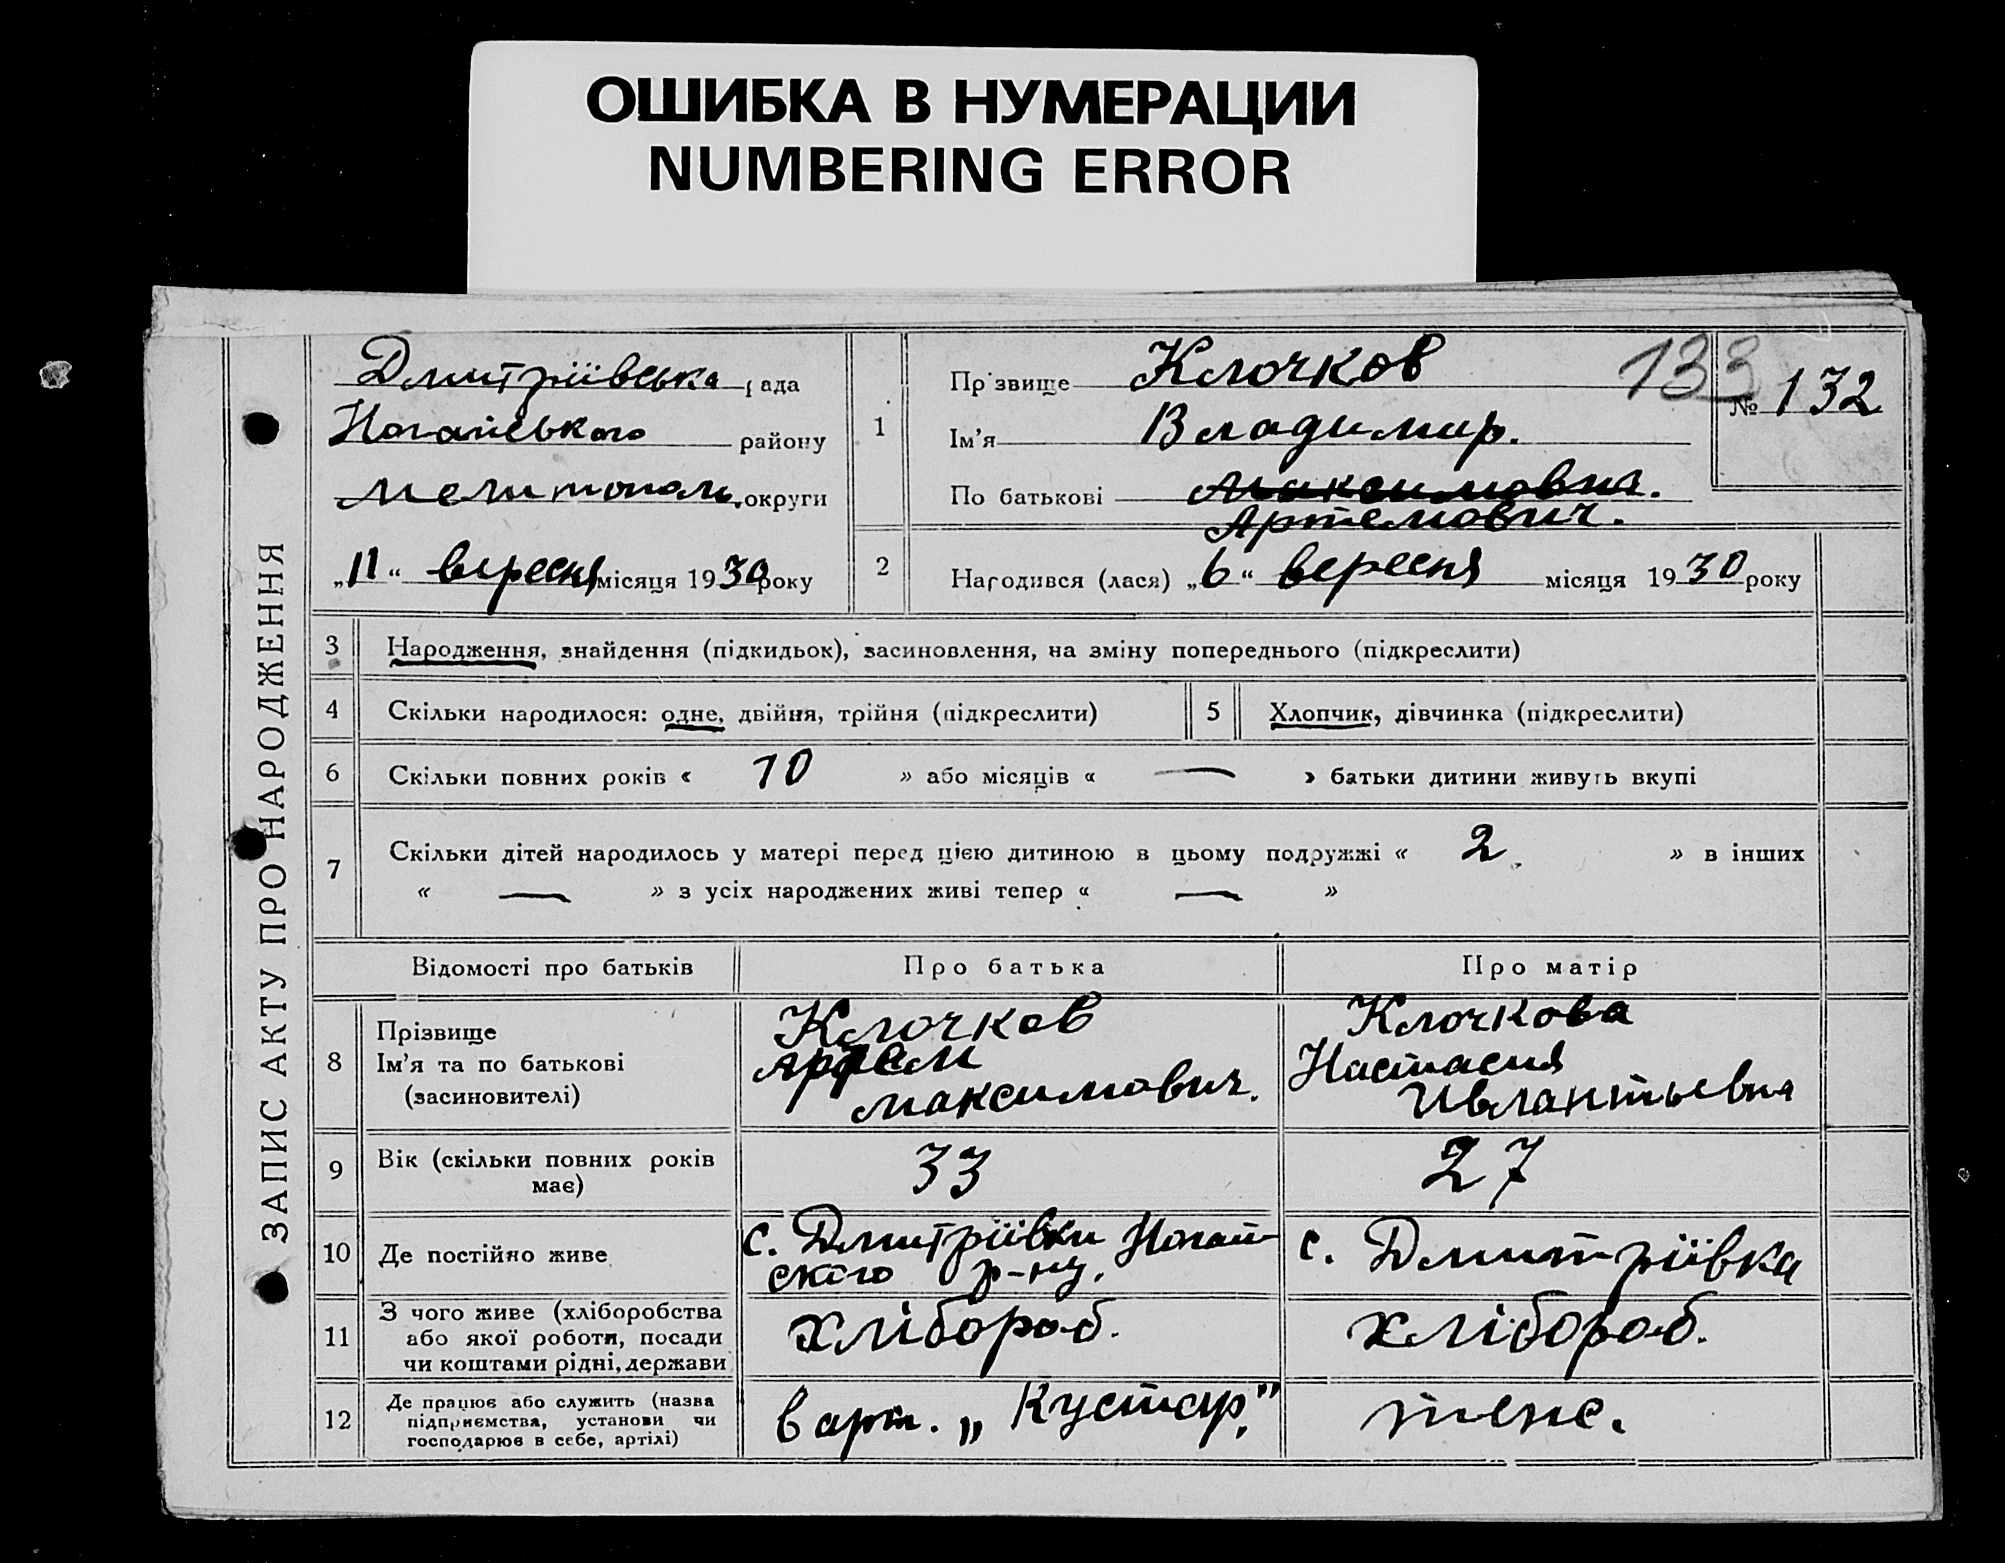 ОШИБКА В НУМЕРАЦИИ
NUMBERING ERROR
ЗАПИС АКТУ ПРО НАРОДЖЕННЯ
Дмитріївська рада
Ногайського району
Мелитополь. округи
„11“ вересня місяця 1930 року
1
Прізвище Клочков
Ім’я Владимир.
По батькові Максимович.
Артемович.
133
№ 132
2
Народився (лася) „6“ вересня місяця 1930 року
3 Народження, знайдення (підкидьок), засиновлення, на зміну попереднього (підкреслити)
4 Скільки народилося: одне, двійня, трійня (підкреслити)
5 Хлопчик, дівчинка (підкреслити)
6 Скільки повних років « 10 » або місяців « — » батьки дитини живуть вкупі
7 Скільки дітей народилось у матері перед цією дитиною в цьому подружжі « 2 » в інших
« — » з усіх народжених живі тепер « — »
Відомості про батьків Про батька Про матір
8 Прізвище
Ім’я та по батькові
(засиновителі)
Клочков
Артем
Максимович.
Клочкова
Настасия
Ивлантьевна
9 Вік (скільки повних років
має)
33
27
10 Де постійно живе
с. Дмитріївки Ногай-
ского р-ну.
с. Дмитріївка
11 З чого живе (хліборобства
або якої роботи, посади
чи коштами рідні, держави
хлібороб.
хлібороб.
12 Де працює або служить (назва
підприємства, установи чи
господарює в себе, артілі)
в арт. „Кустар.”